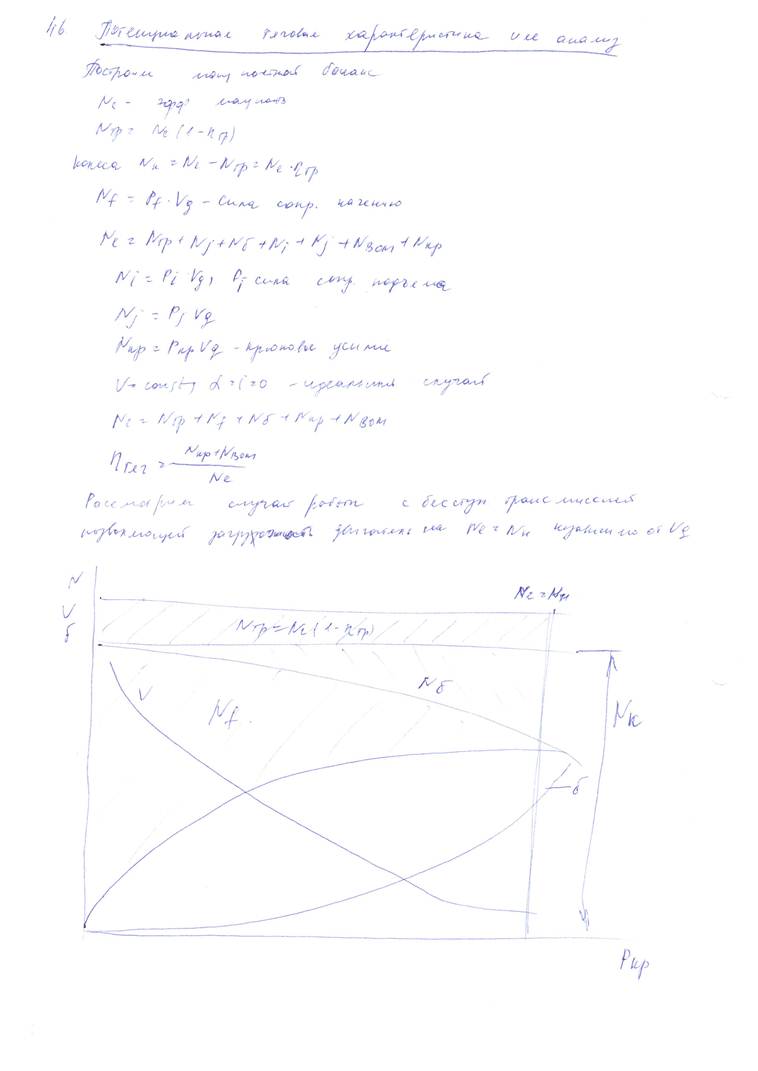 46. Потенциальная тяговая характеристика и ее анализ
Построим мощностной баланс
Ne - эфф мощность
Nтр = Ne (1-ηтр)
колеса Nк = Ne - Nтр = Ne·ηтр
Nf = Pf·Vд - сила сопр. качению
Ne = Nтр + Nj + Nδ + Ni + Nj + NВОМ + Nкр
Ni = Pi·Vд, Pi сила сопр. подъема
Nj = Pj Vд
Nкр = Pкр Vд - крюковое усилие
V = const, α = i = 0 - идеальный случай
Ne = Nтр + Nf + Nδ + Nкр + NВОМ
ηтяг = Nкр+NВОМ / Ne
Рассмотрим случай работы с бесступ трансмиссией
позволяющей двигатель на Ne = Nн независимо от Vд
N
V
δ
Ne = Nн
Nтр = Ne (1-ηтр)
Nδ
V
Nf
Nк
δ
Pкр